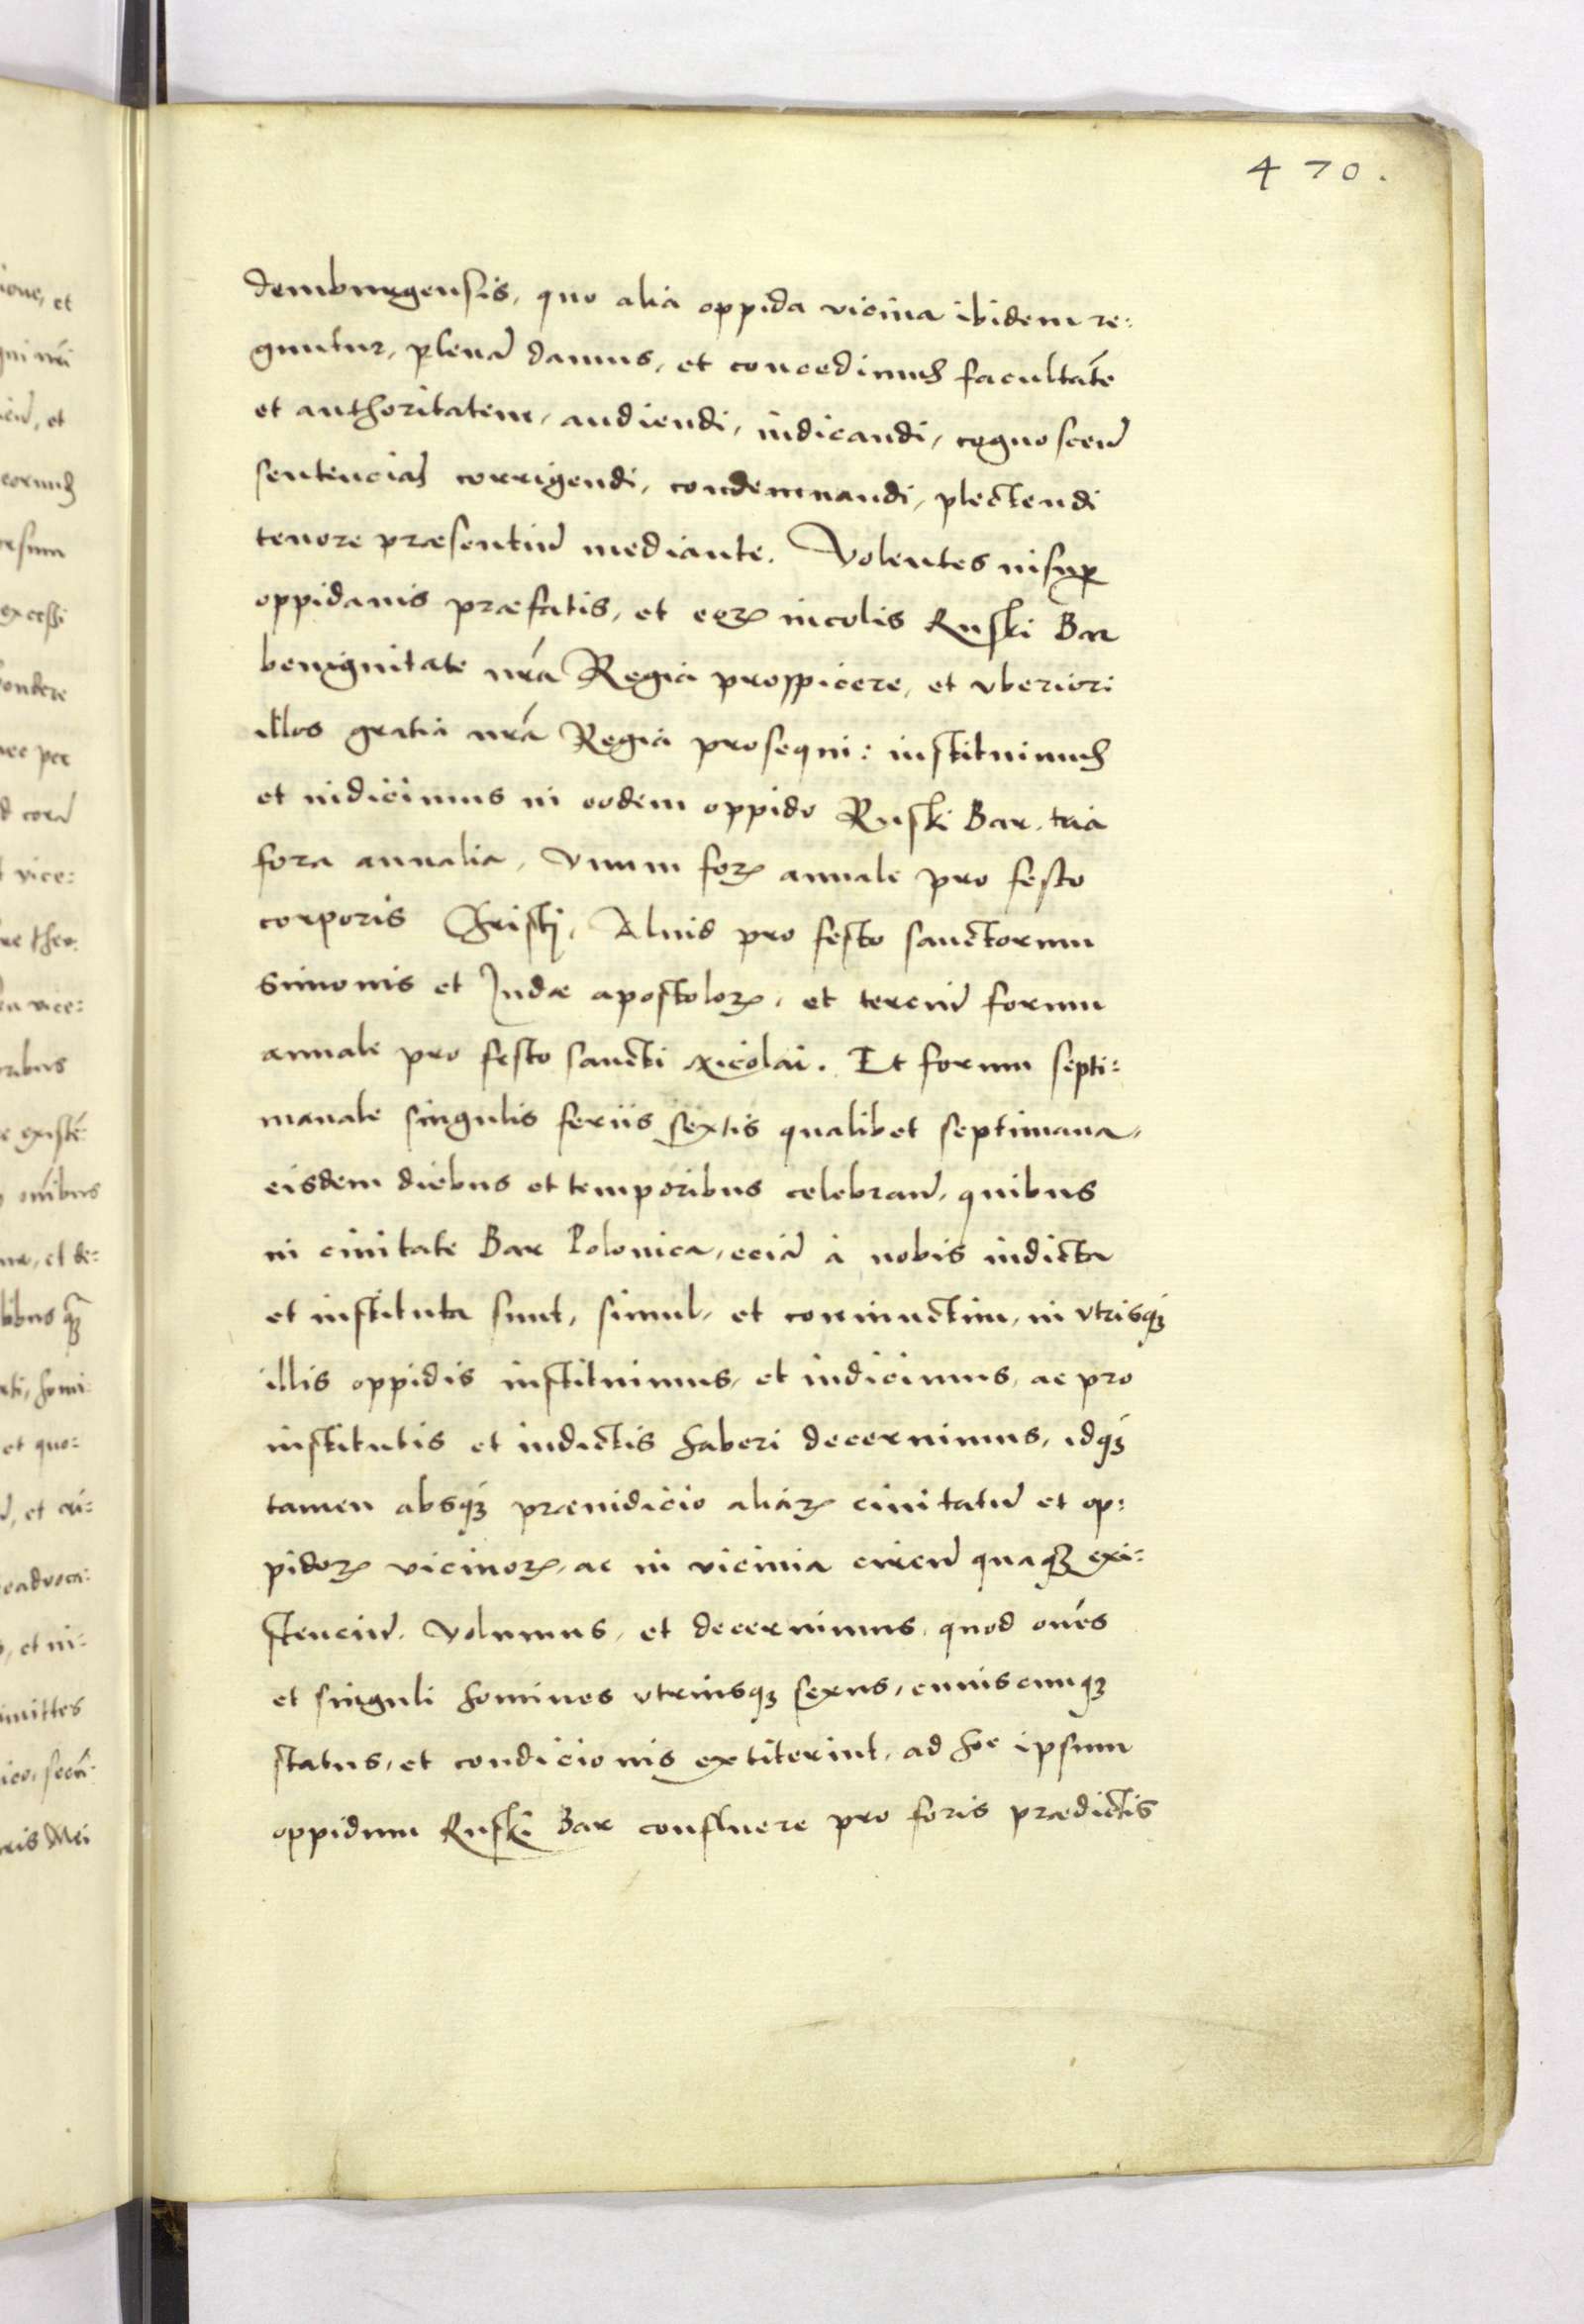 470.
demburgensis, quo alia oppida vicina ibidem re:
guntur, plenã damus, et concedimus facultatẽ
et authoritatem, audiendi, iudicandi, cognoscenđ
sentencias corrigendi, condemnandi, plectendi
tenore præsentiũ mediante. Volentes insuꝑ
oppidanis præfatis, et eoꝝ incolis Ruski Bar
benignitate nrã Regia prospicere, et vberiori
illos gratia nrã Regia prosequi: instituimus
et indicimus in eodem oppido Ruski Bar, tria
fora annalia, Vnum foꝝ annale pro festo
corporis Christj, Aliud pro festo sanctorum
Simonis et Judæ apostoloꝝ, et terciũ forum
annale pro festo sancti Nicolai. Et forum septi:
manale singulis feriis sextis qualibet septimana,
eisdem diebus et temporibus celebranđ, quibus
in ciuitate Bar Polonica, eciã à nobis indicta
et instituta sunt, simul, et coniunctim, in vtrisq́ꝫ
illis oppidis instituimus, et indicimus, ac pro
institutis et indictis haberi decernimus, idq́ꝫ
tamen absq́ꝫ præiudicio aliaꝝ ciuitatũ et op:
pidoꝝ vicinoꝝ, ac in vicinia circũ quaqꝫ exi:
stenciũ. Volumus, et decernimus, quod onẽs
et singuli homines vtriusqꝫ sexus, cuiuscunqꝫ
status, et condicionis extiterint, ad hoc ipsum
oppidum Ruski Bar confluere pro foris prædictis